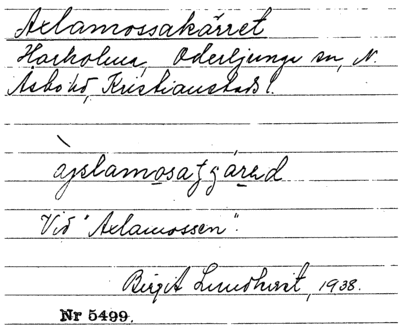 Axlamossakärret
Harholma, Oderljunga sn, N.
Åsbo hd, Kristianstads l.
Vid "Axlamossen".
Birgit Lundkvist, 1938.
Nr 5499.